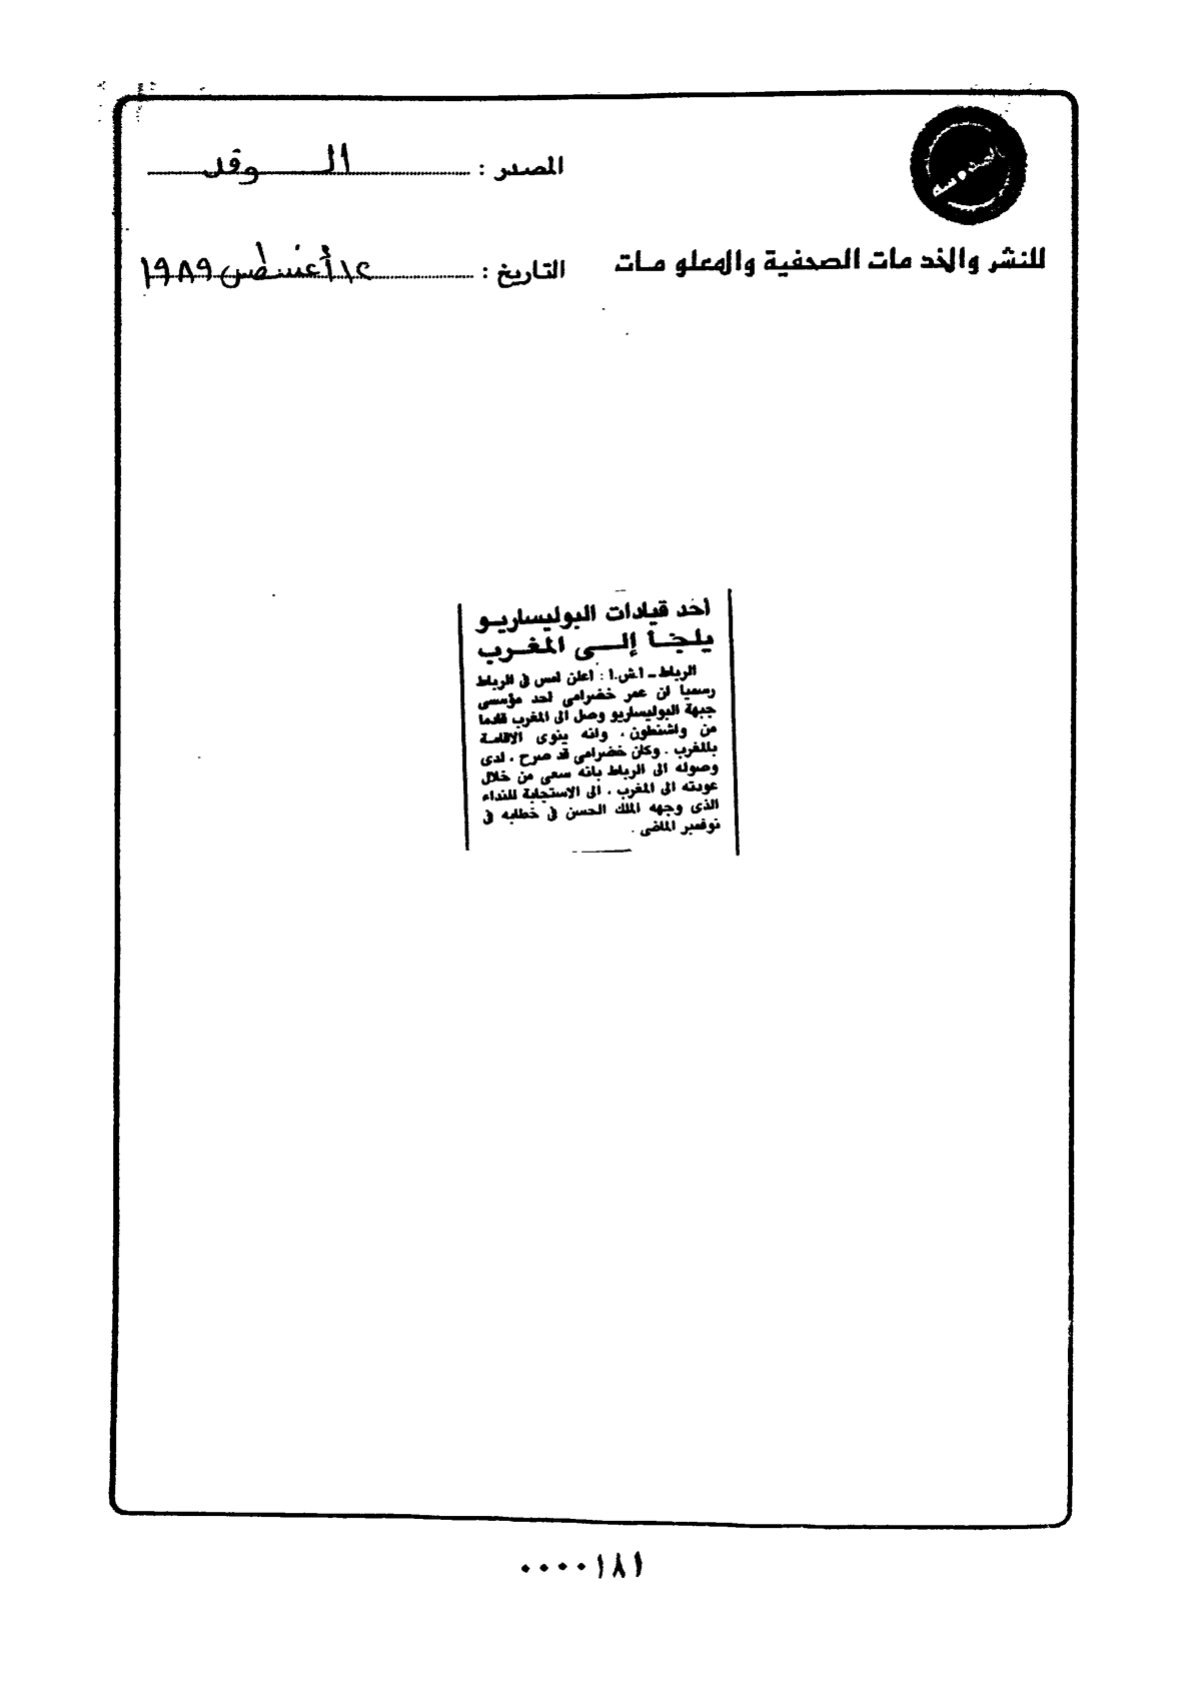 المصدر : الوفد
للنشر والخدمات الصحفية والمعلومات
التاريخ : ١٢ أغسطس ١٩٨٩
أحد قيادات البوليساريو
يلجأ إلى المغرب
الرباط - أ.ش.ا : اعلن امس فى الرباط
رسميا ان عمر خضرامى احد مؤسسى
جبهة البوليساريو وصل الى المغرب قادما
من واشنطون ، وانه ينوى الاقامة
بالمغرب . وكان خضرامى قد صرح ، لدى
وصوله الى الرباط بانه سعى من خلال
عودته الى المغرب ، الى الاستجابة للنداء
الذى وجهه الملك الحسن فى خطابه فى
نوفمبر الماضى .
٠٠٠٠١٨١